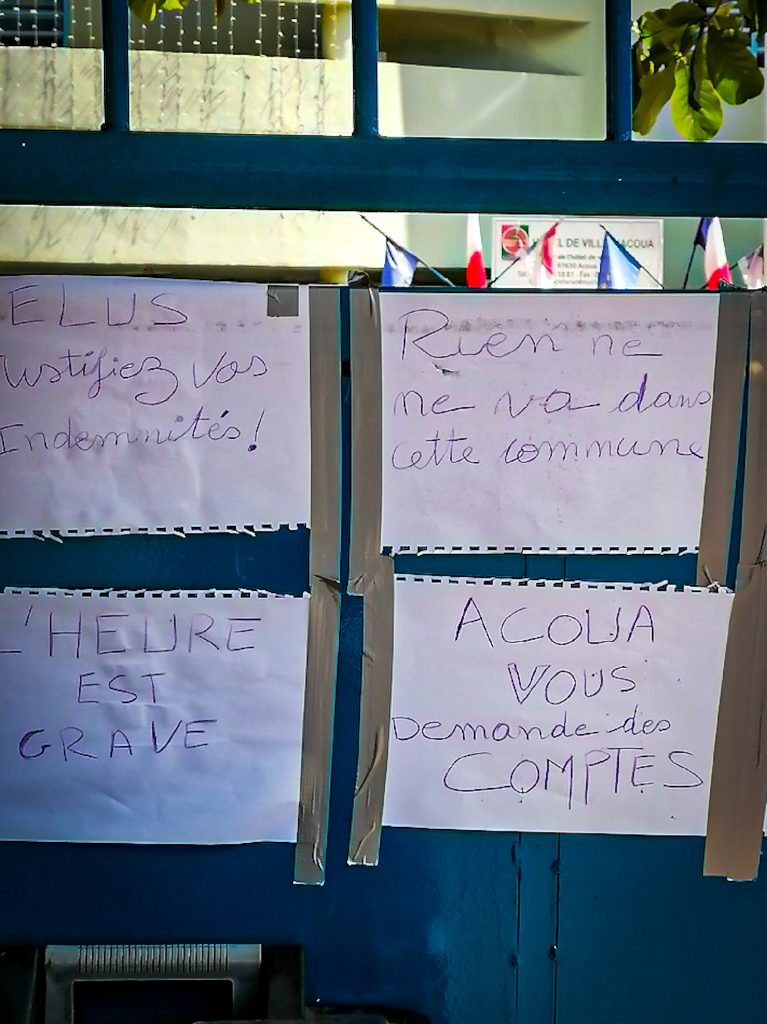 L DE VILL ACOUA
97630 Acoua
ELUS
Justifiez vos
Indemnités!
Rien ne
ne va dans
cette commune
L'HEURE
EST
GRAVE
ACOUA
VOUS
Demande des
COMPTES